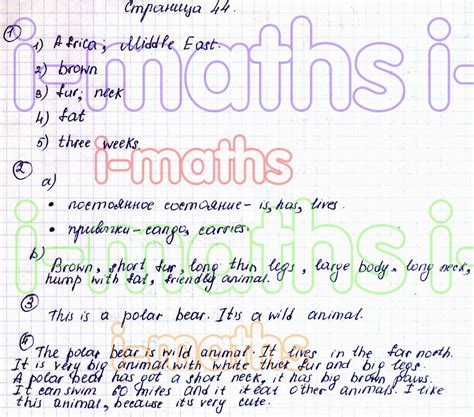 Страница 44.
1
1) Africa; Middle East.
2) brown
3) fur, neck
4) fat
5) three weeks
2
a)
• постоянное состояние - is, has, lives.
• привычки - can go, carries.
b)
Brown, short fur, long thin legs, large body, long neck,
hump with fat, friendly animal.
3
This is a polar bear. It is a wild animal.
4
The polar bear is wild animal. It lives in the far north.
It is very big animal with white fur and big legs.
A polar bear has got a short neck, it has big brown paws.
It can swim 60 miles and it it eat other animals. I like
this animal, because its very cute.
i-maths i-
i-maths
i-maths i-
i-maths